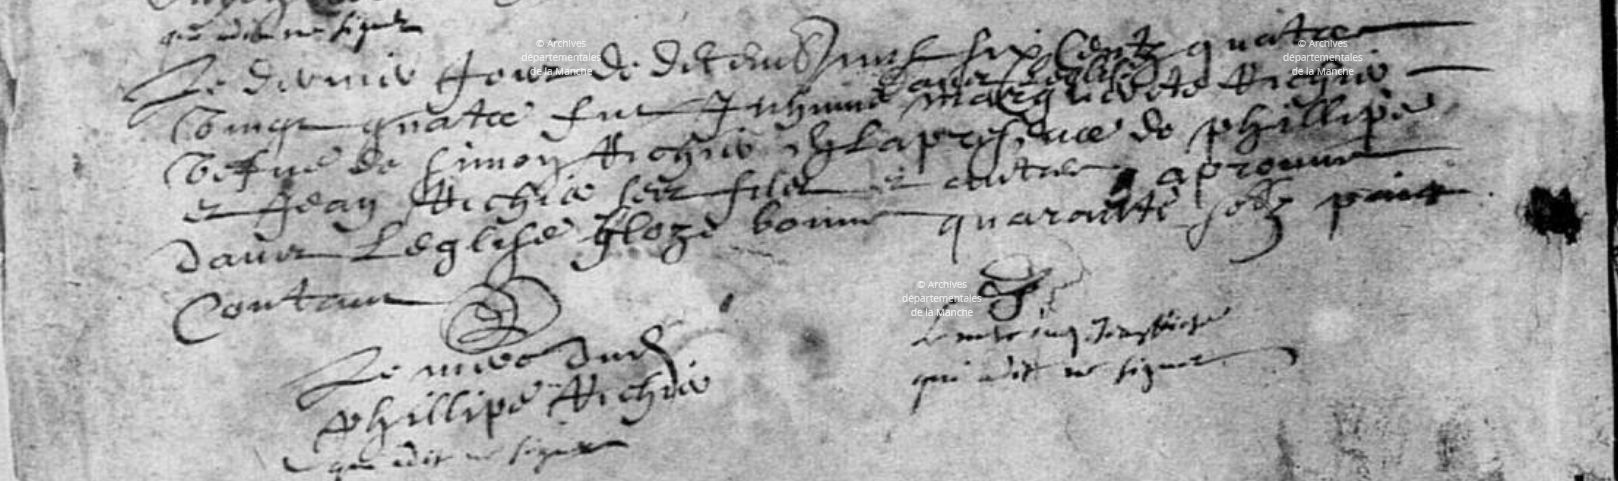 qui a dit ne signer
Le dernier jour de decembre mil six centz quatre
vingt quatre fut Inhumé dans leglise Marguerite Richer
vefve de Simon Richer En la presence de phillipe
et Jean Richer ses filz et autres a promis
daver Leglise Gloze bonne quarante solz paié
Contant
Le merc dud
phillipe Richer
qui a dit ne signer
Le merc dud Jean Richer
qui a dit ne signer
© Archives
départementales
de la Manche
© Archives
départementales
de la Manche
© Archives
départementales
de la Manche